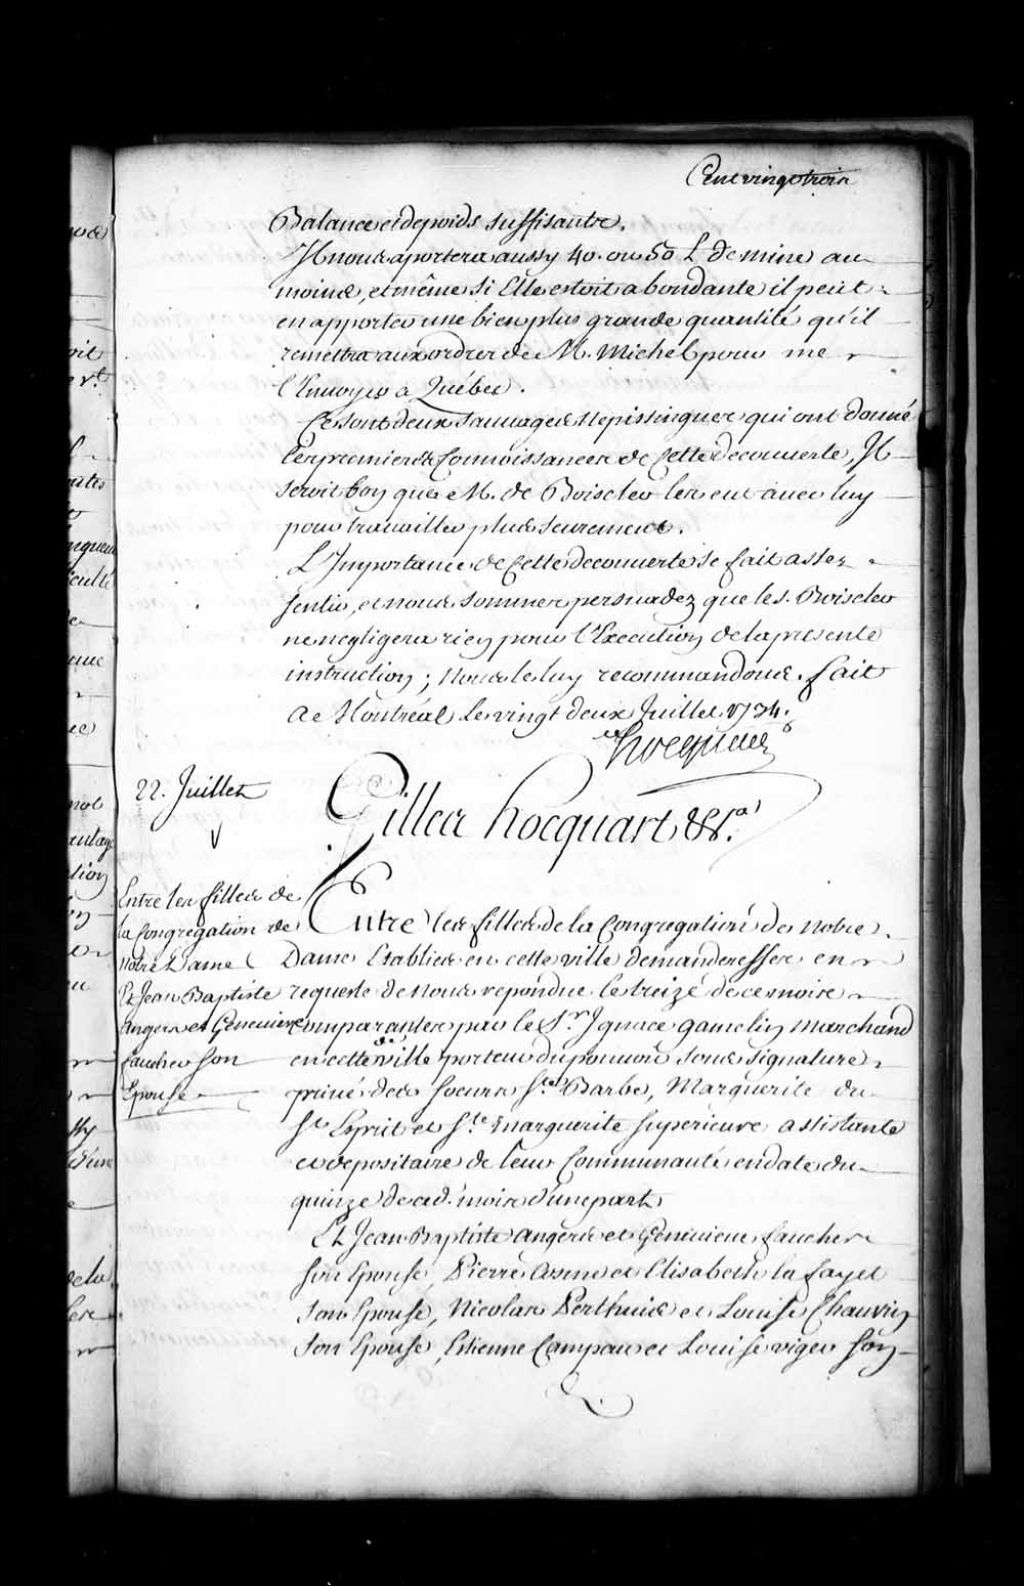 Cent vingt trois
Balance et de poids suffisante.
Il nous aportera aussy 40. ou 50 L de mine au
moins, et même si Elle estoit abondante il peut
en apporter une bien plus grande quantité qu'il
remettra aux ordres de M. Michel pour me
l'Envoyer a Québec.
Ce sont deux sauvages Nepissingues qui ont donné
les premieres Connoissances de Cette decouverte, Il
seroit bon que M. de Boiscler les eut avec luy
pour travailler plus seurement.
L'Importance de Cette decouverte se fait assez
sentir, et nous sommes persuadez que le s. Boiscler
ne negligera rien pour l'Execution de la presente
instruction; Nous le luy recommandons. fait
A Montréal le vingt deux Juillet 1734.
hocquart
22. Juillet
Gilles hocquart &c.a
Entre les filles de
la Congregation de
Notre Dame
Et Jean Baptiste
Angers et Genevieve
faucher son
Epouse
Entre les filles de la Congregation de Notre
Dame Etablies en cette ville demanderesses en
requeste de Nous repondue le treize de ce mois
comparantes par le Sr Ignace gamelin Marchand
en cette ville porteur du pouvoir sous signature
privé des soeurs Ste Barbe, Marguerite du
St Esprit et Ste marguerite superieure assistante
et depositaire de leur Communauté en date du
quinze de ced. mois d'une part
Et Jean Baptiste angers et Genevieve faucher
son Epouse, Pierre et Elisabeth la fayet
son Epouse, Nicolas Perthuis et Louise Chauvin
son Epouse, Etienne Campau et Louise viger son